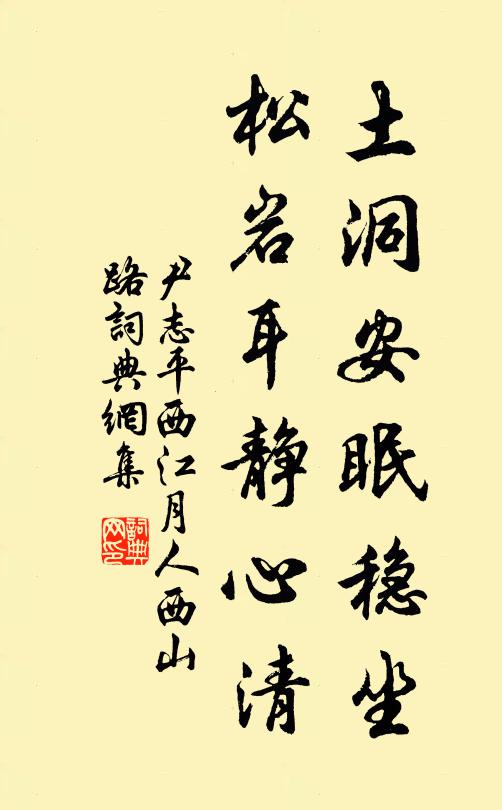 土洞安眠稳坐
松岩耳静心清
尹志平西江月人西山
路詞典網集
詞典网印